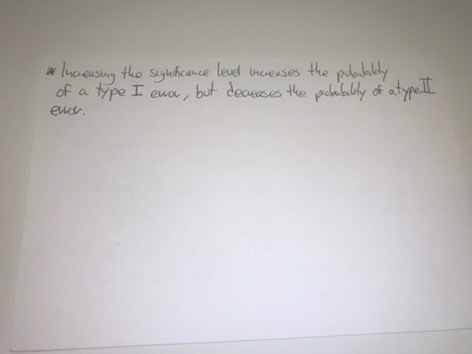 * Increasing the significance level increases the probability
of a type I error, but decreases the probability of a type II
error.